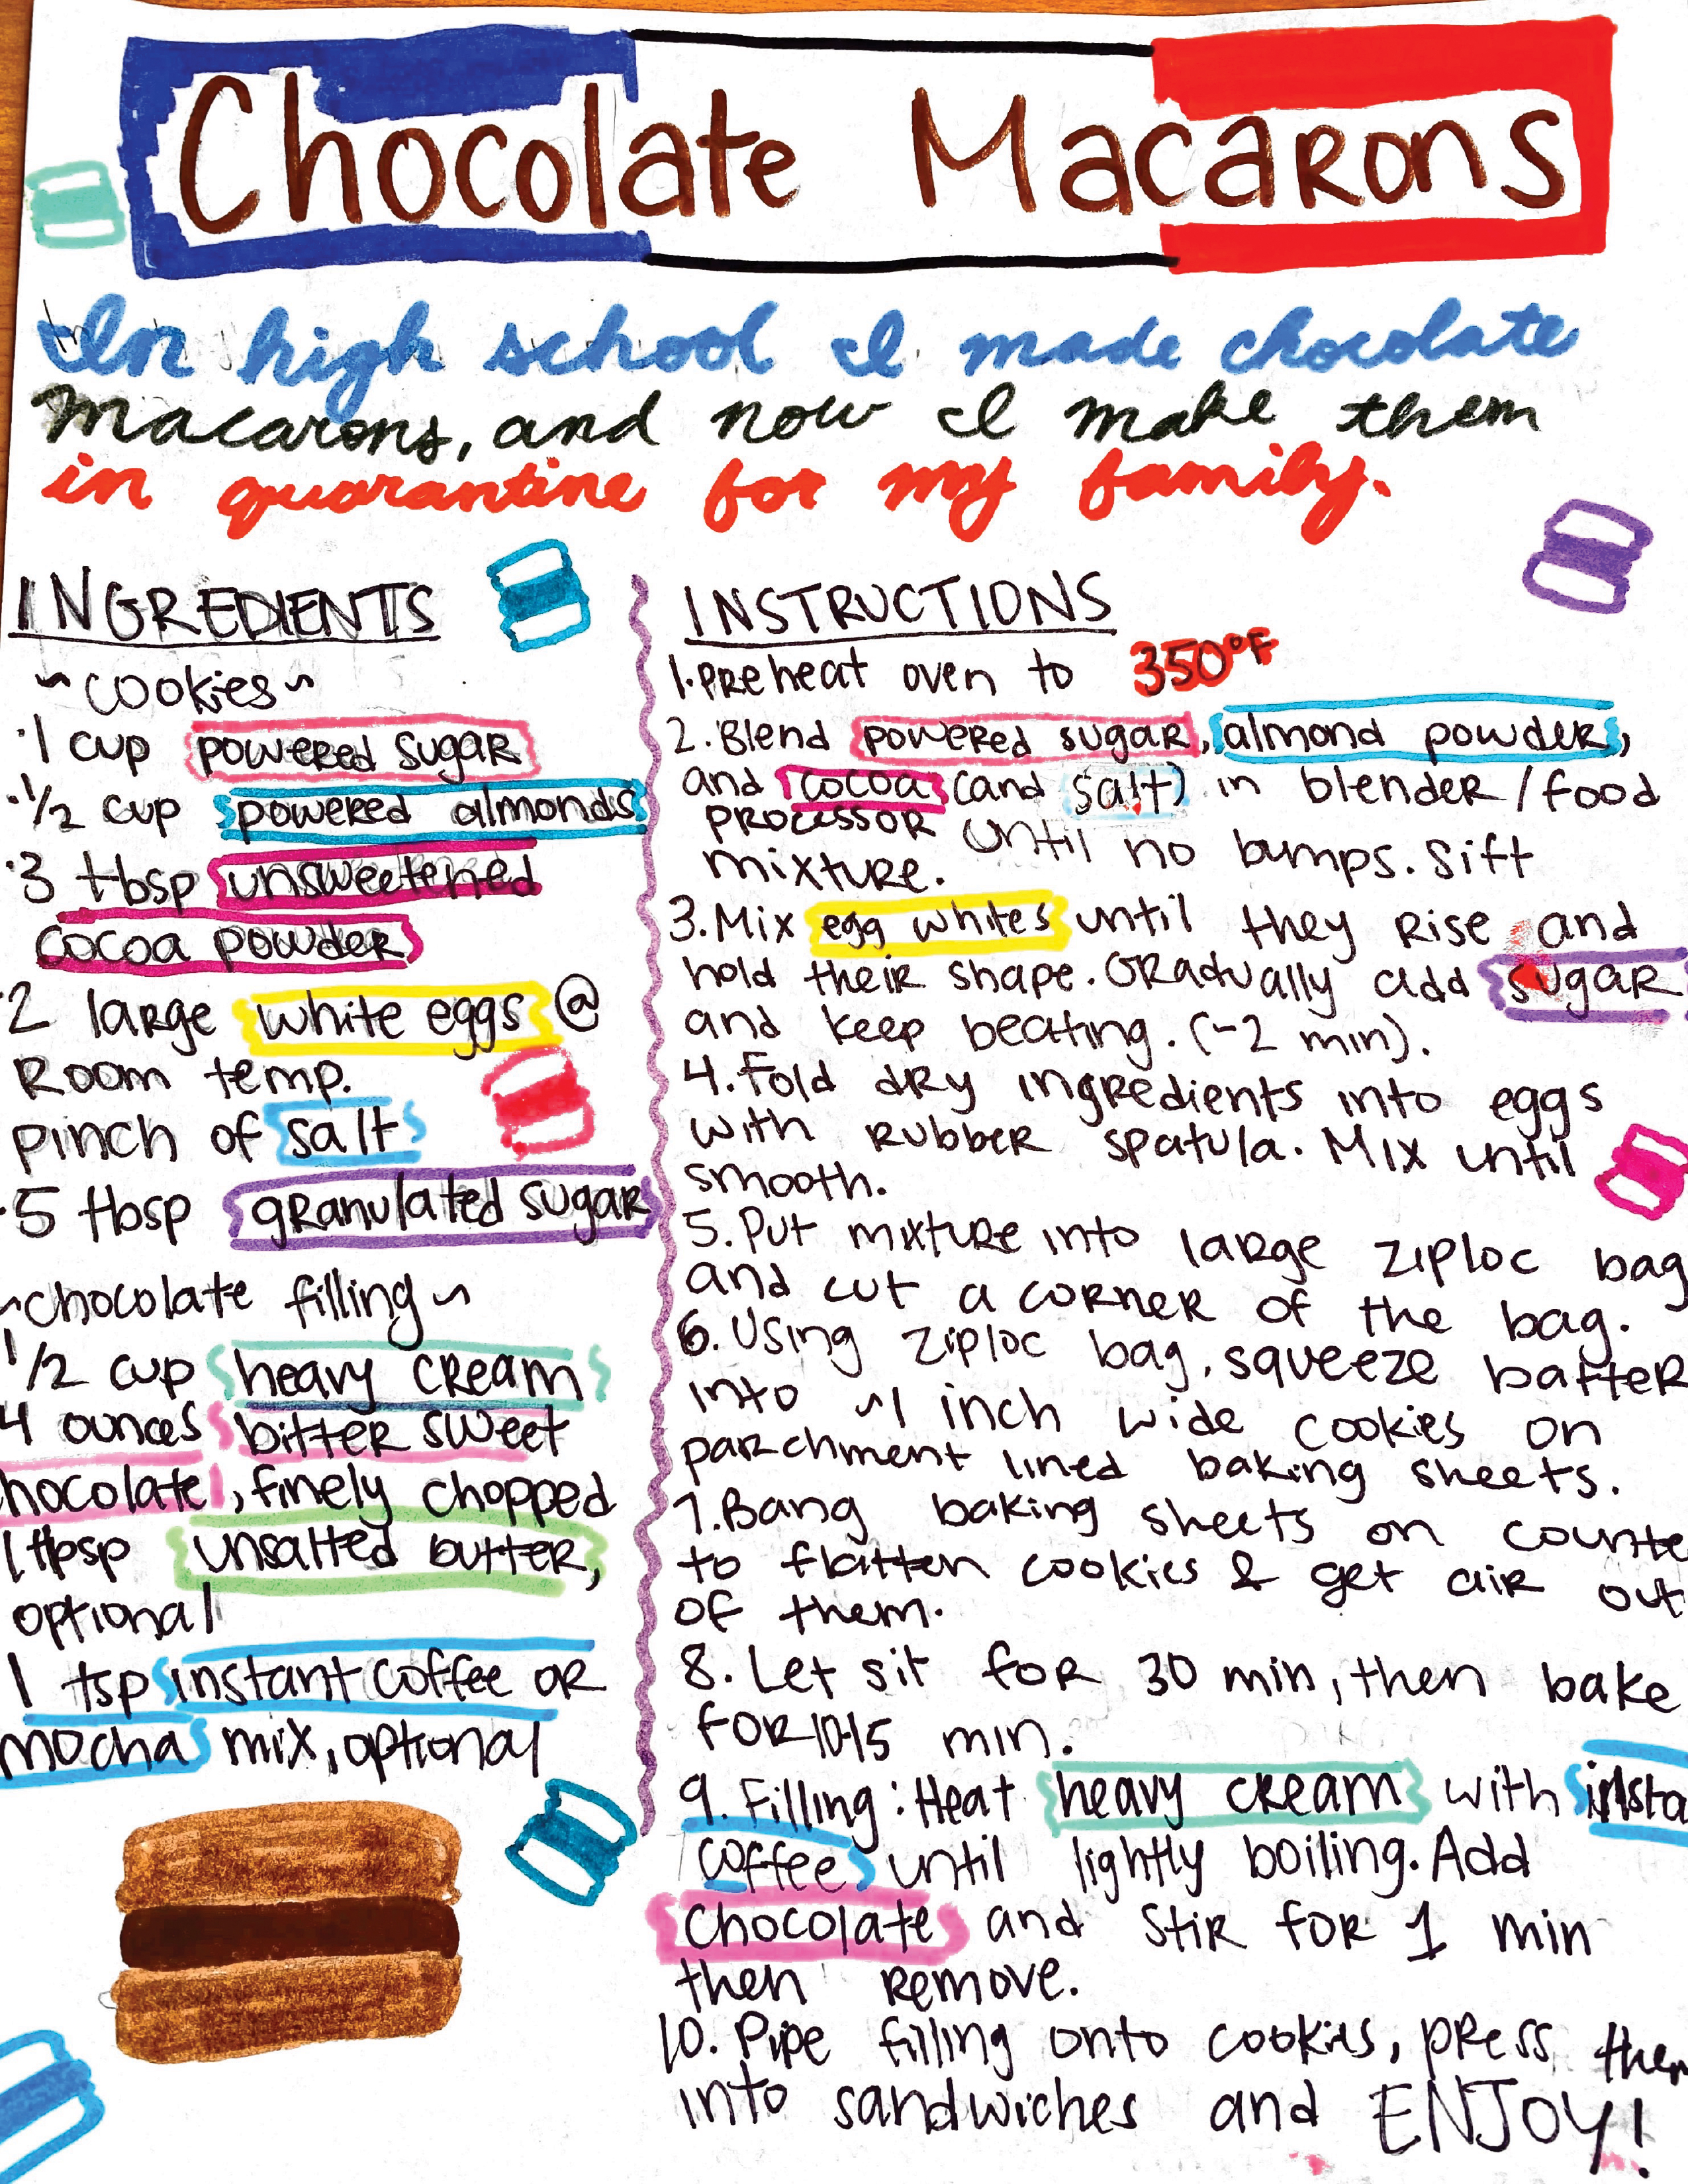 Chocolate Macarons
In high school I made chocolate
macarons, and now I make them
in quarantine for my family.
INGREDIENTS
~cookies~
·1 cup powered sugar
·1/2 cup powered almonds
·3 tbsp unsweetened
cocoa powder
·2 large white eggs @
room temp.
pinch of salt
·5 tbsp granulated sugar
~chocolate filling~
1/2 cup heavy cream
4 ounces bitter sweet
hocolate, finely chopped
1 tbsp unsalted butter,
optional
1 tsp instant coffee or
mocha mix, optional
INSTRUCTIONS
1. Preheat oven to 350°F
2. Blend powered sugar, almond powder,
and cocoa (and salt) in blender/food
processor until no bumps. Sift
mixture.
3. Mix egg whites until they rise and
hold their shape. Gradually add sugar
and keep beating. (~2 min).
4. Fold dry ingredients into eggs
with rubber spatula. Mix until
smooth.
5. Put mixture into large ziploc bag
and cut a corner of the bag.
6. Using ziploc bag, squeeze batter
into ~1 inch wide cookies on
parchment lined baking sheets.
7. Bang baking sheets on counte
to flatten cookies & get air out
of them.
8. Let sit for 30 min, then bake
for 10-15 min.
9. Filling: Heat heavy cream with insta
coffee until lightly boiling. Add
chocolate and stir for 1 min
then remove.
10. Pipe filling onto cookies, press them
into sandwiches and ENJOY!